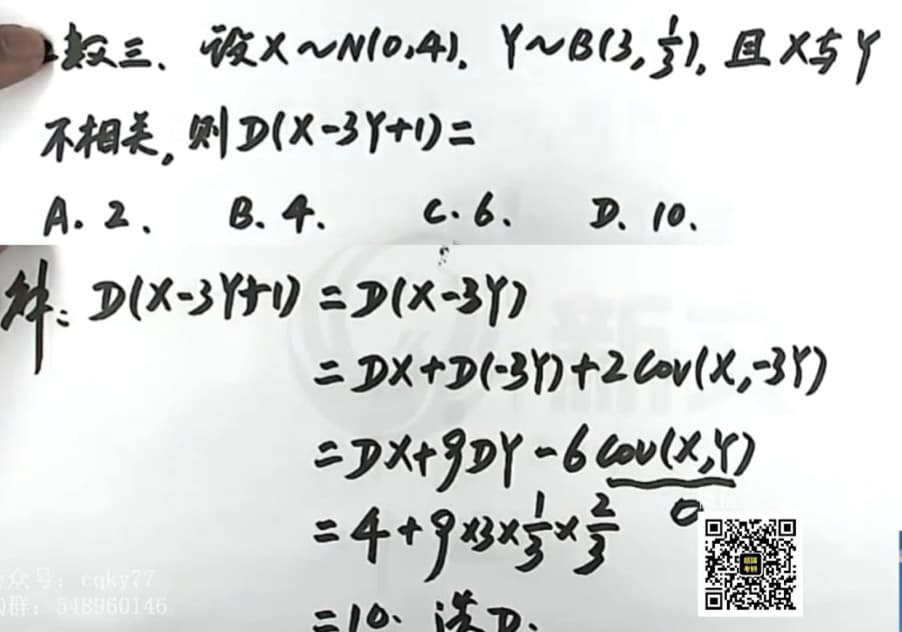 数三、设X~N(0,4), Y~B(3,1/3), 且X与Y
不相关,则D(X-3Y+1)=
A. 2. B. 4. C. 6. D. 10.
解: D(X-3Y+1) = D(X-3Y)
= DX+D(-3Y)+2Cov(X,-3Y)
= DX+9DY-6Cov(X,Y)
0
= 4+9×3×1/3×2/3
=10. 选D.
众号: cqky77
群: 548960146